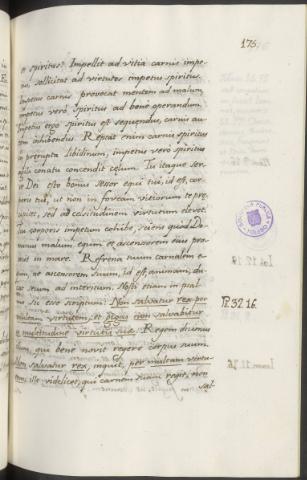 175
et spiritus? Impellit ad vitia carnis impe-
tus, sollicitat ad virtutes impetus spiritus.
Impetus carnis provocat mentem ad malum,
impetus vero spiritus ad bene operandum.
Impetus ergo spiritus est sequendus, carnis au-
tem cohibendus. Respuit enim carnis spiritus
prompta libidinum, impetus vero spiritus
conatu concendit celum. Tu itaque ser-
ve Dei esto bonus sessor equi tui, id est, cor-
poris tui, ut non in foveam vitiorum te pre-
cipitet, sed ad celsitudinem virtutum elevet.
corporis impetum cohibe, sciens quod Do-
minus malum equm et ascensorem eius pro-
iecit in mare. Refrena tuum carnalem e-
quum, ne ascensorem suum, id est, animam, du-
cat secum ad interitum. Nosti etiam in psal-
mo sic esse scriptum: Non salvatur rex per
multam virtutem, et gigas non salvabitur
in multitudine virtutis sue. Regem dicimus
illum, qui bene novit regere corpus suum.
Non salvatur rex, inquit, per multam virtu-
tem, ille videlicet, qui carnem suam regit, non
sal-
Ps. 32. 16.